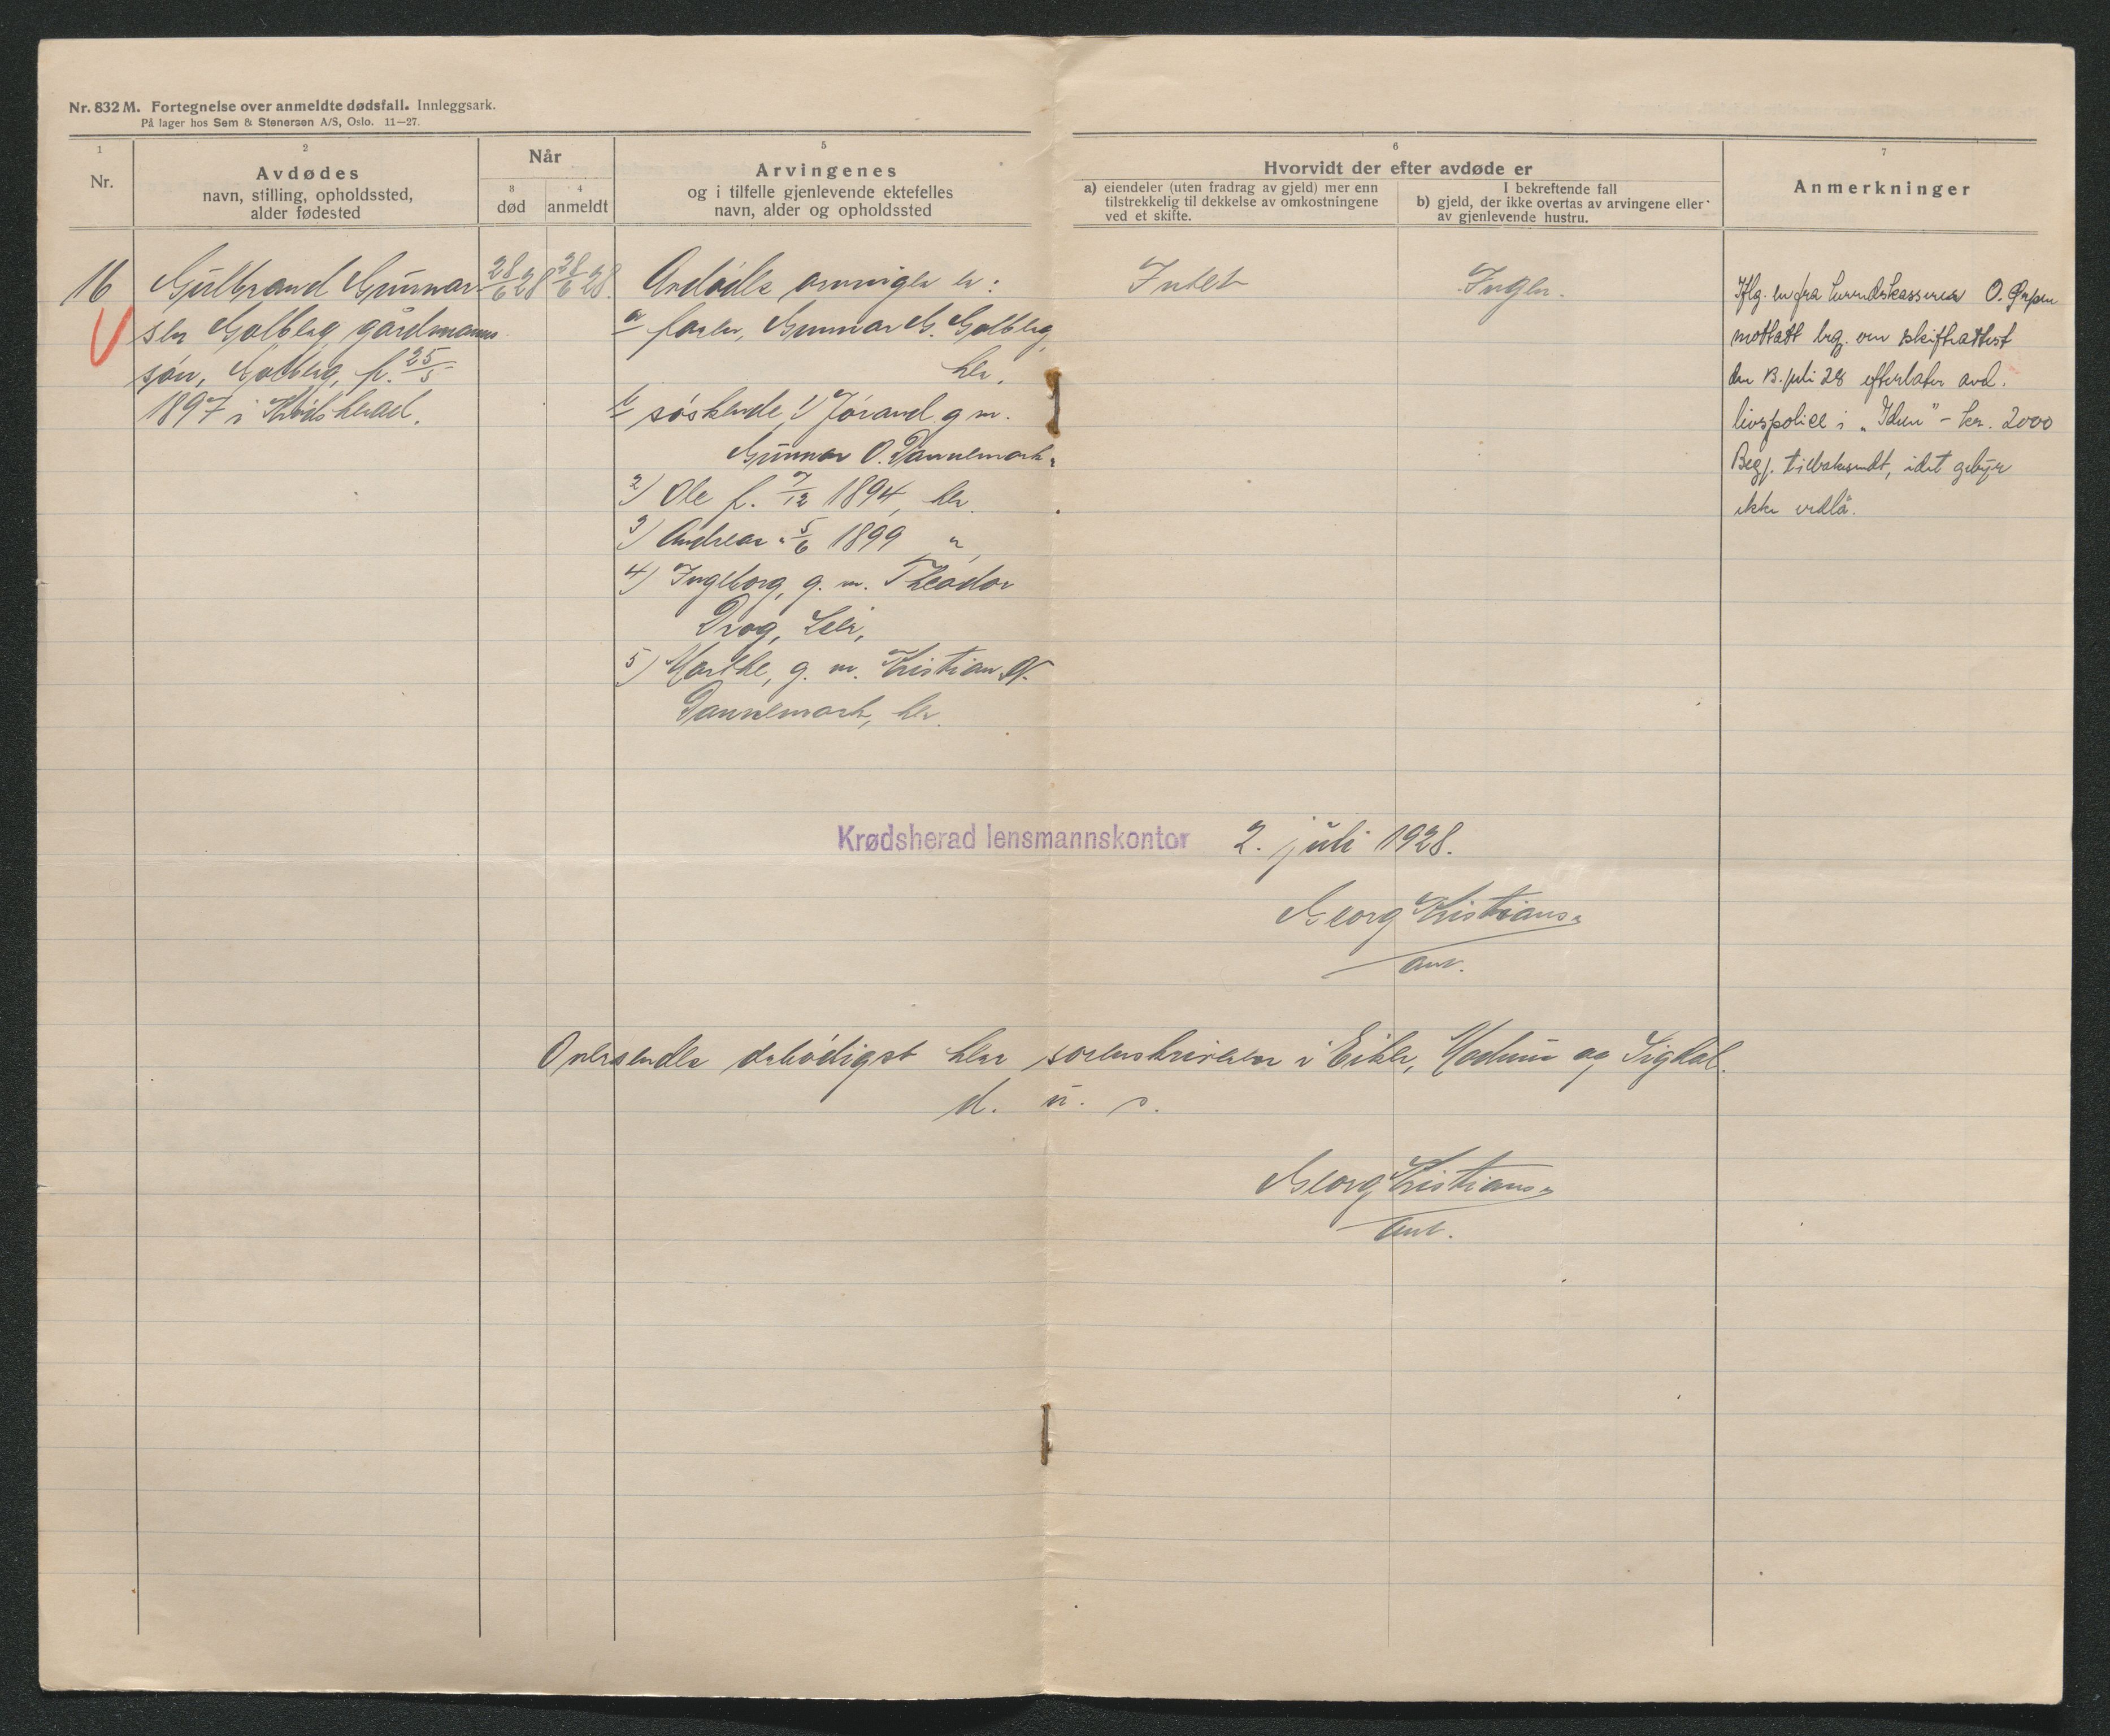 Nr. 832 M. Fortegnelse over anmeldte dødsfall. Innleggsark.
På lager hos Sem & Stenersen A/S, Oslo. 11—27.
1
Nr.
2
Avdødes
navn, stilling, opholdssted,
alder fødested
Når
3
død
4
anmeldt
5
Arvingenes
og i tilfelle gjenlevende ektefelles
navn, alder og opholdssted
6
Hvorvidt der efter avdøde er
a) eiendeler (uten fradrag av gjeld) mer enn
tilstrekkelig til dekkelse av omkostningene
ved et skifte.
I bekreftende fall
b) gjeld, der ikke overtas av arvingene eller
av gjenlevende hustru.
7
Anmerkninger
16
Gulbrand Gunnar-
sen Golberg, gårdmanns
søn, Golberg, f. 25/5
1897 i Krødsherad.
28/6 28
28/6 28.
Avdødes arvinger er:
a/ faren, Gunnar G. Golberg,
her.
b/ søskende 1/ Jørand g. m.
Gunnar O. Dannemark,
2/ Ole f. 7/12 1894, her.
3/ Andreas " 5/6 1899 "
4/ Ingeborg, g. m. Theodor
Drog, Lier,
5/ Marthe, g. m. Kristian N.
Dannemark, her.
Intet
Ingen.
Iflg. en fra herredskasserer O.
mottatt beg. om skifteattest
den 13. juli 28 efterlater avd.
livspolice i "Idun" – kr. 2000
Begj. tilbakesendt, idet gebyr
ikke vedlå.
Krødsherad lensmannskontor 2. juli 1928.
Georg Kristians.
Oversendes ærbødigst herr sorenskriveren i Eiker, Modum og Sigdal.
d. u. s.
Georg Kristians.